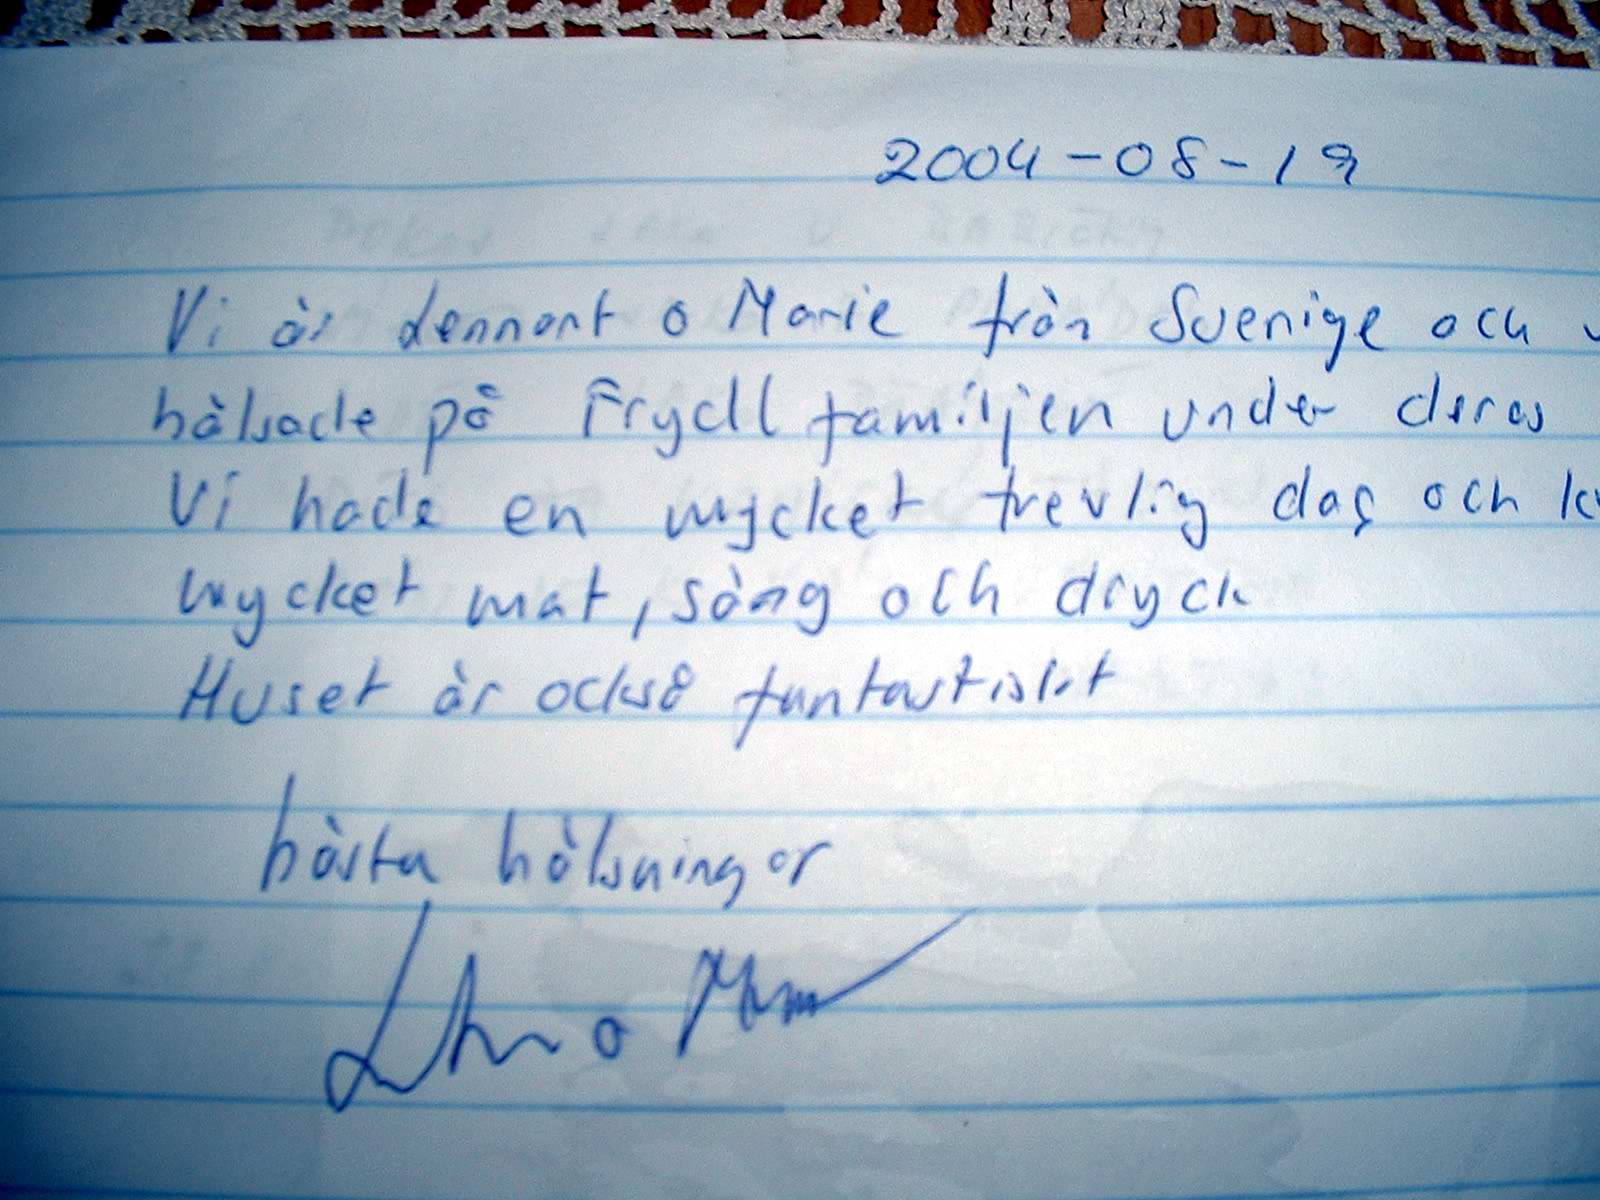 2004-08-19
Vi är Lennart o Marie från Sverige och
hälsade på Frydll familjen under deras
Vi hade en mycket trevlig dag och
mycket mat, sång och dryck
Huset är också fantastiskt
bästa hälsningar